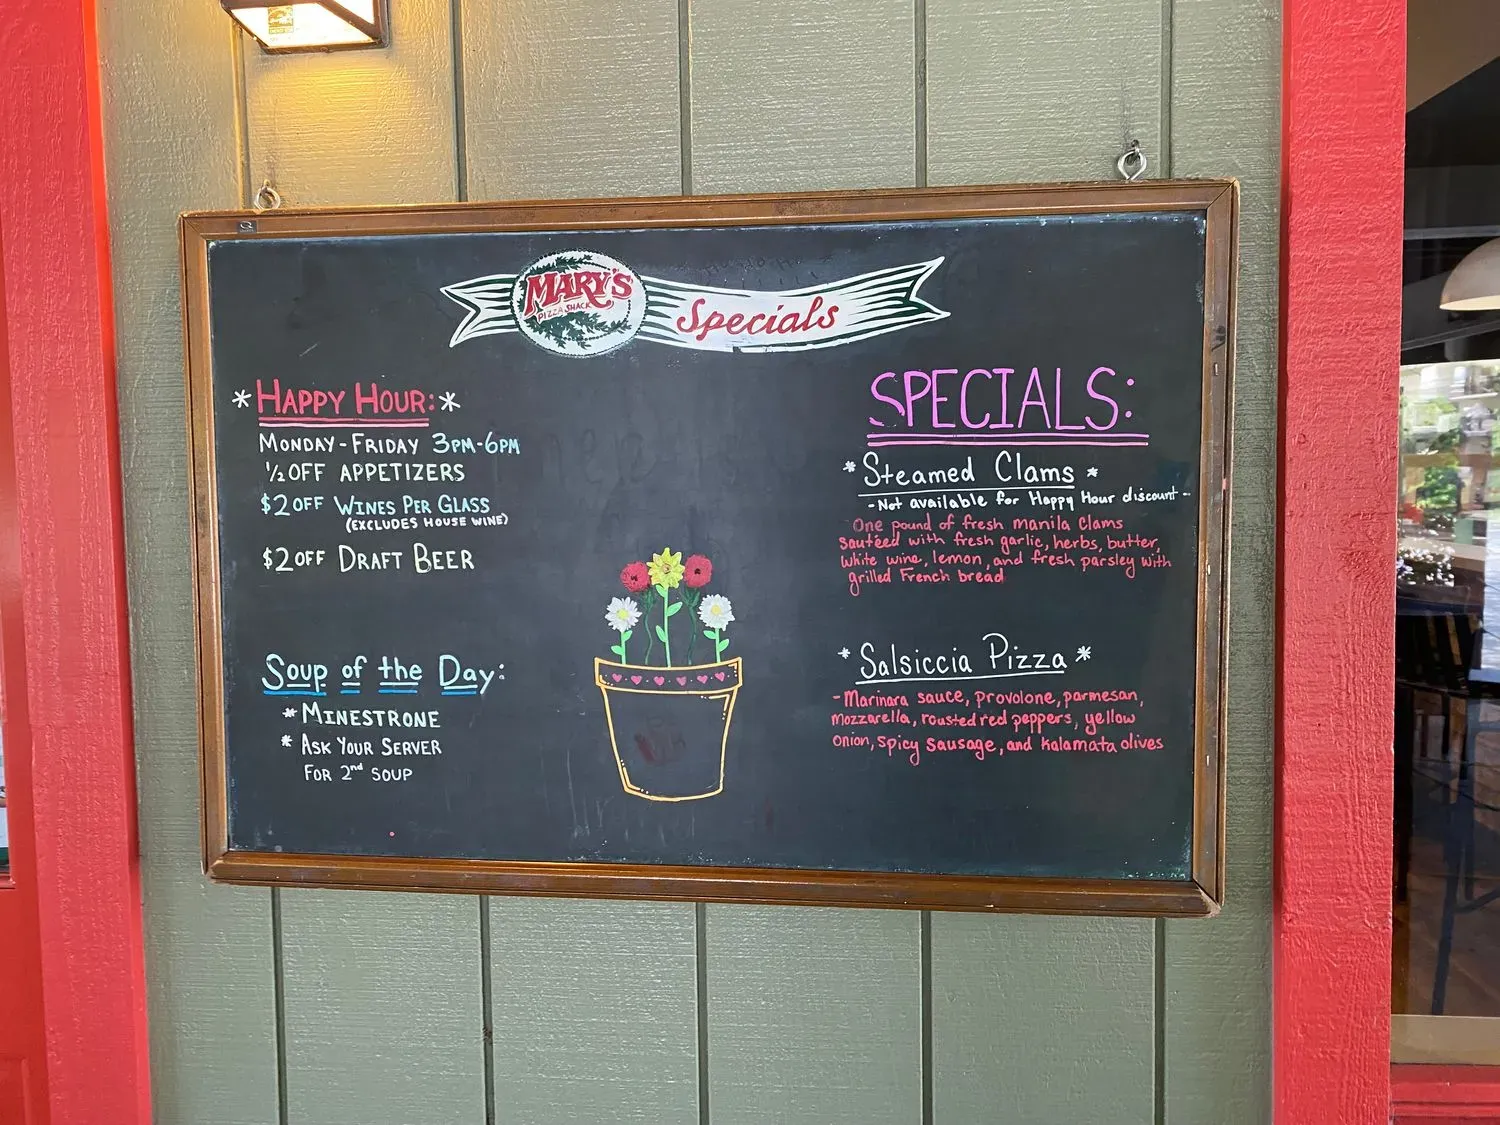 MARY'S
PIZZA SHACK
Specials
*HAPPY HOUR:*
MONDAY-FRIDAY 3PM-6PM
½ OFF APPETIZERS
$2 OFF WINES PER GLASS
(EXCLUDES HOUSE WINE)
$2 OFF DRAFT BEER
Soup of the Day:
*MINESTRONE
*ASK YOUR SERVER
FOR 2nd SOUP
SPECIALS:
*Steamed Clams*
-Not available for Happy Hour discount-
One pound of fresh manila clams
sautéed with fresh garlic, herbs, butter,
white wine, lemon, and fresh parsley with
grilled French bread
*Salsiccia Pizza*
-Marinara sauce, provolone, parmesan,
mozzarella, roasted red peppers, yellow
onion, spicy sausage, and kalamata olives